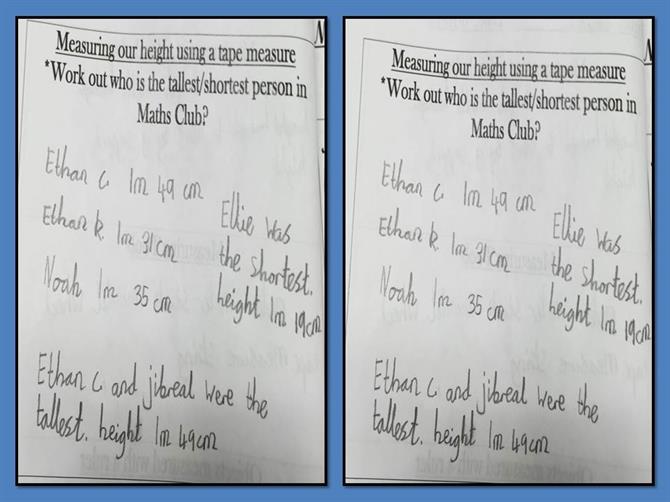 Measuring our height using a tape measure
*Work out who is the tallest/shortest person in
Maths Club?
Ethan C. 1m 49 cm
Ethan k 1m 31cm
Noah 1m 35 cm
Ellie was
the shortest.
height 1m 19cm
Ethan C. and jibreal were the
tallest. height 1m 49cm
Measuring our height using a tape measure
*Work out who is the tallest/shortest person in
Maths Club?
Ethan C. 1m 49 cm
Ethan k 1m 31cm
Noah 1m 35 cm
Ellie was
the shortest.
height 1m 19cm
Ethan C. and jibreal were the
tallest. height 1m 49cm